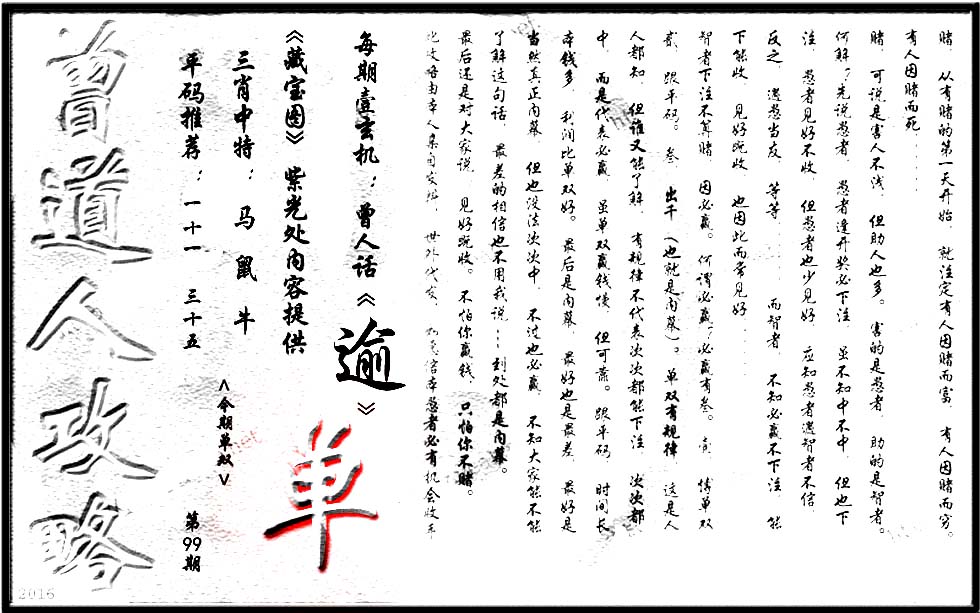 赌，从有赌的第一天开始，就注定有人因赌而富，有人因赌而穷。
有人因赌而死………
赌，可说是害人不浅，但助人也多。害的是愚者，助的是智者。
何解？先说愚者，愚者逢开奖必下注，虽不知中不中，但也下
注，愚者见好不收，但愚者也少见好，应知愚者遇智者不信，
反之，遇愚当友，等等……而智者，不知必赢不下注，能
下能收，见好既收，也因此而常见好………
智者下注不算赌，因必赢。何谓必赢？必赢有叁。壹，博单双
贰，跟平码。叁，出千（也就是内幕）。单双有规律，这是人
人都知，但谁又能了解，有规律不代表次次都能下注，次次都
中，而是代表必赢，虽单双赢钱慢，但可靠。跟平码，时间长
本钱多，利润比单双好。最后是内幕，最好也是最差，最好是
当然真正内幕，但也没法次次中，不过也必赢，不知大家能不能
了解这句话，最差的相信也不用我说…到处都是内幕。
最后还是对大家说，见好既收。不怕你赢钱，只怕你不赌。
此攻略由本人亲自发处，世外代发，
愚者必有机会收手
每期壹玄机：曾人话《逾》
《藏宝图》紫光处内容提供
三肖中特：马 鼠 牛
平码推荐：一十一 三十五
<今期单双>
单
第99期
曾道人攻略
2016